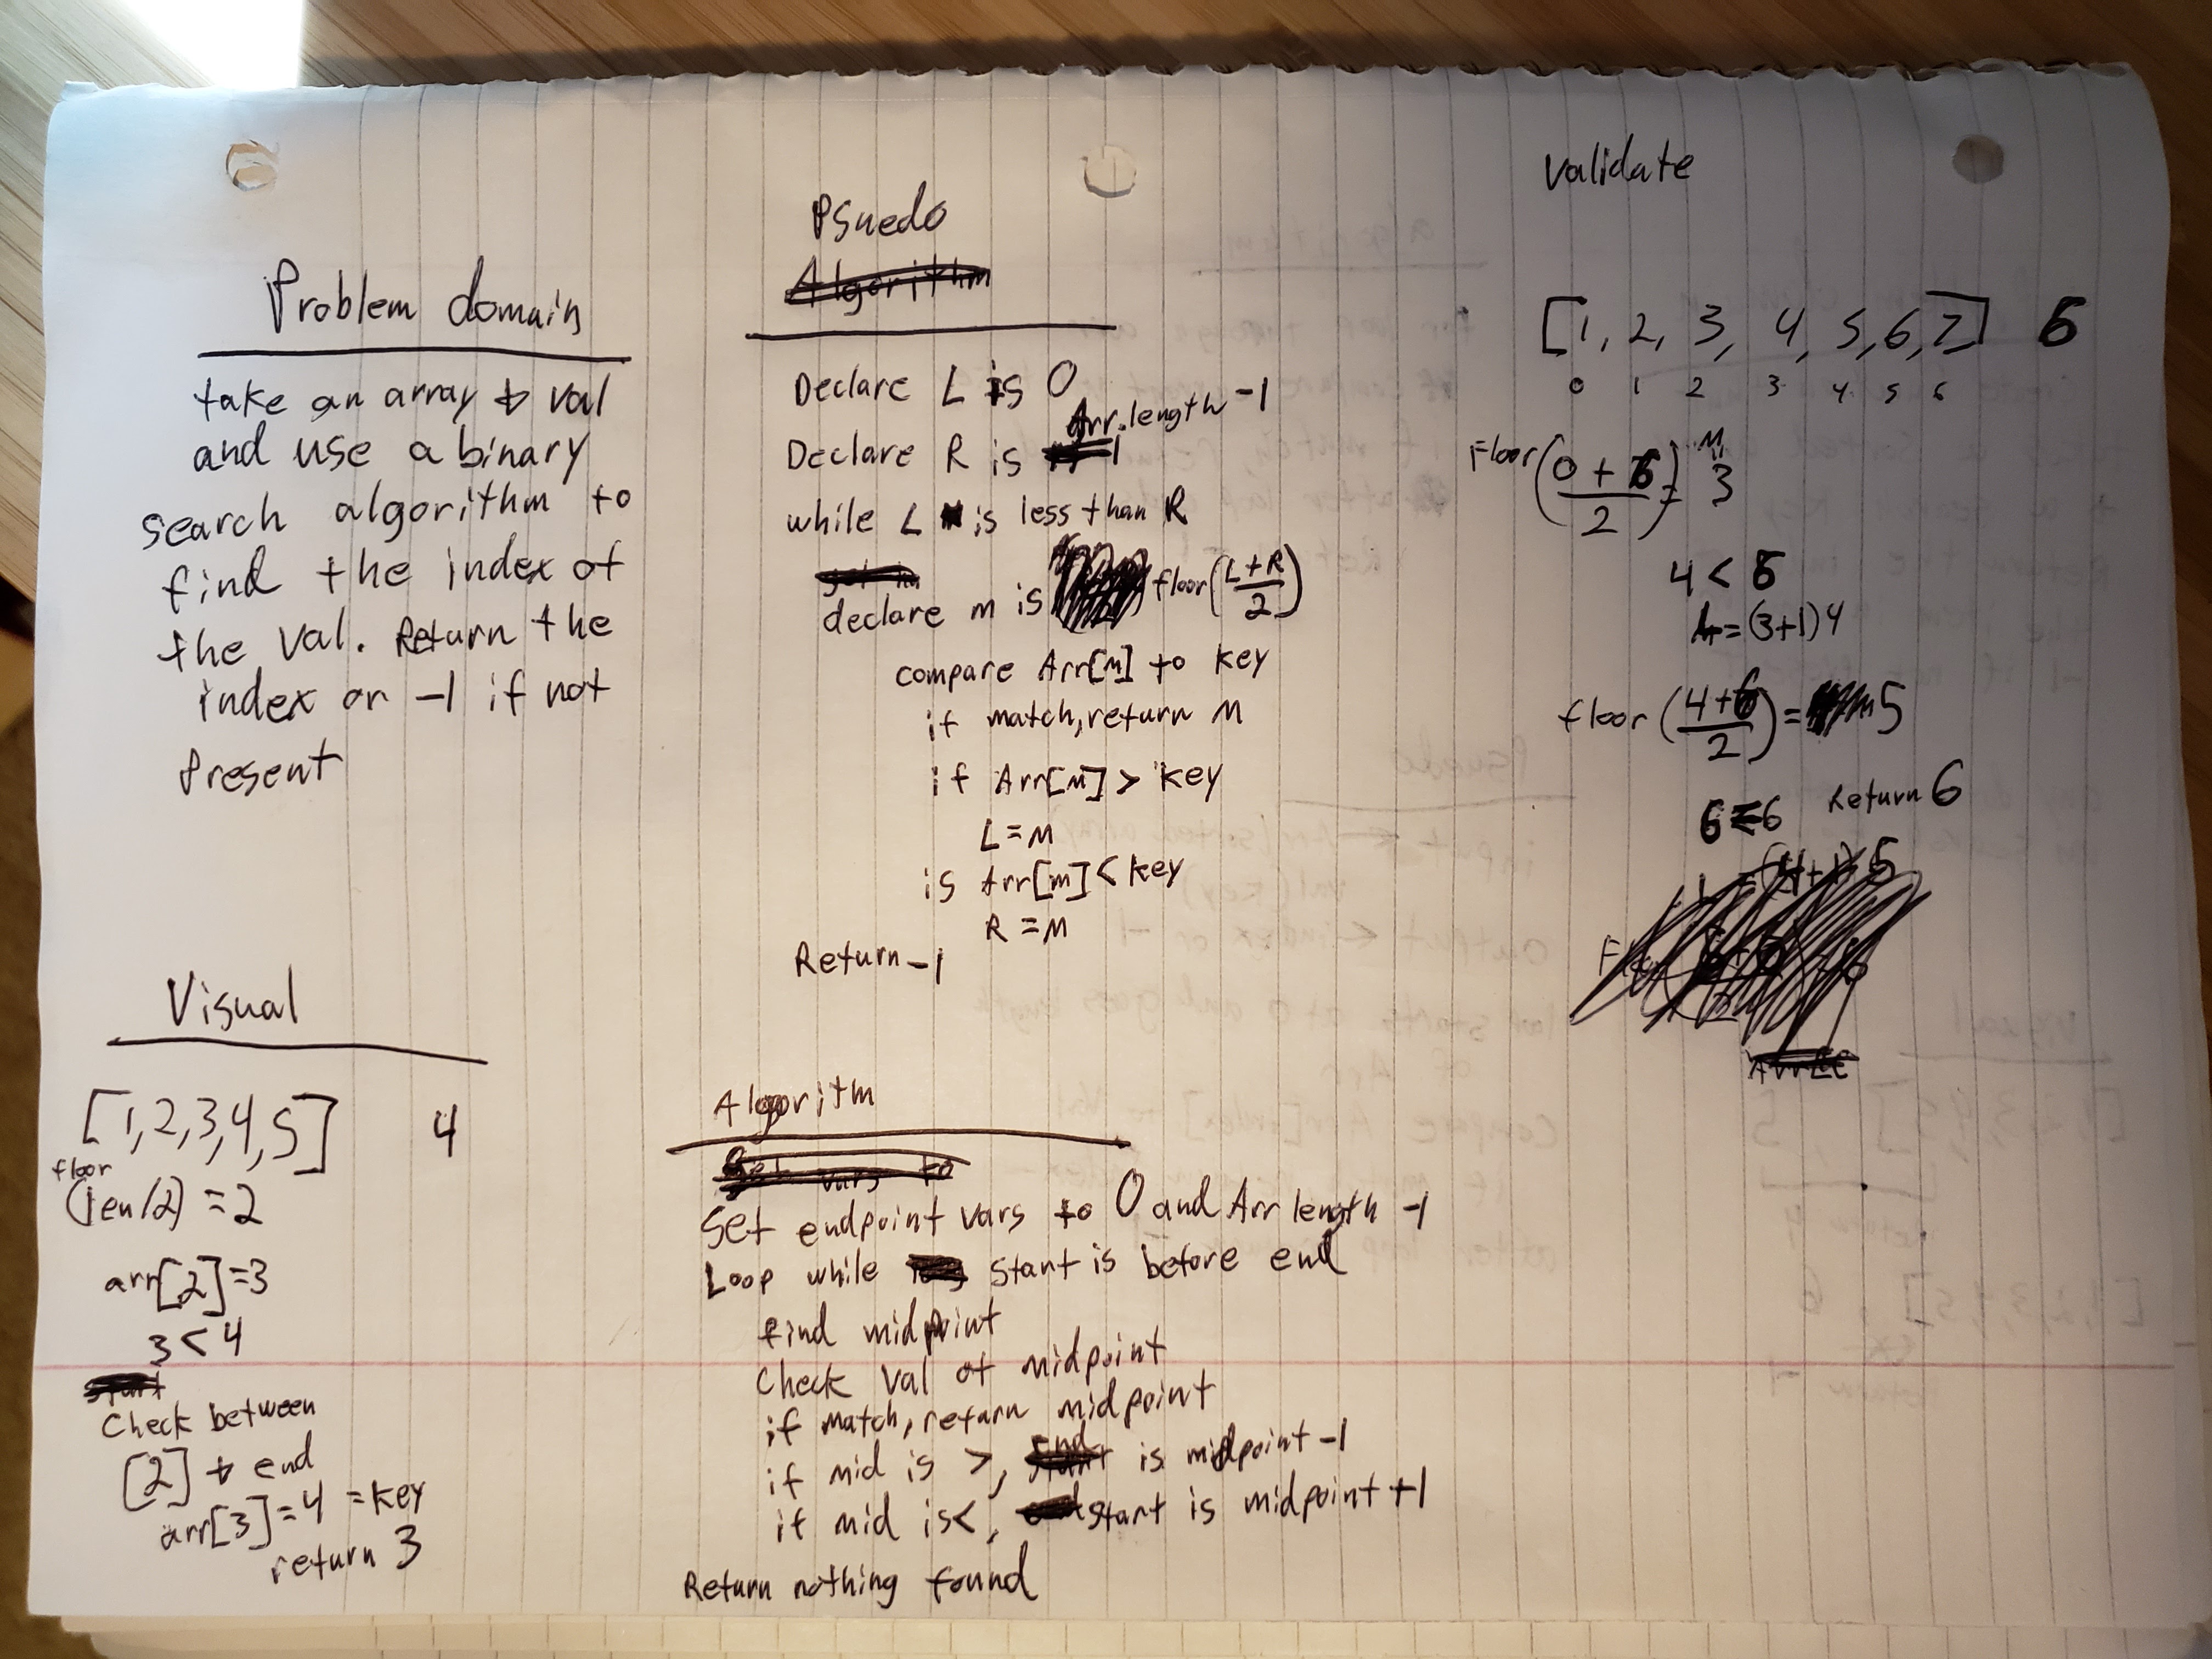 Problem domain
take an array & val
and use a binary
search algorithm to
find the index of
the val. Return the
index or -1 if not
Present
Visual
[1,2,3,4,5] 4
floor
(len/2) = 2
arr[2]=3
3<4
start
Check between
[2] & end
arr[3]=4 =key
return 3
Psuedo
Algorithm
Declare L is 0
Arr.length -1
Declare R is
while L is less than R
declare m is floor(L+R/2)
compare Arr[M] to key
if match, return M
if Arr[M] > key
L=M
is Arr[m] < key
R=M
Return -1
Algorithm
Set vars to
Set endpoint vars to 0 and Arr length -1
Loop while start is before end
find midpoint
Check val of midpoint
if match, return midpoint
if mid is >, end is midpoint -1
if mid is <, start is midpoint +1
Return nothing found
Validate
[1, 2, 3, 4, 5, 6, 7] 6
0 1 2 3 4 5 6
M
Floor(0+6/2) = 3
4 < 6
L=(3+1)4
floor(4+6/2) = 5
6=6 Return 6